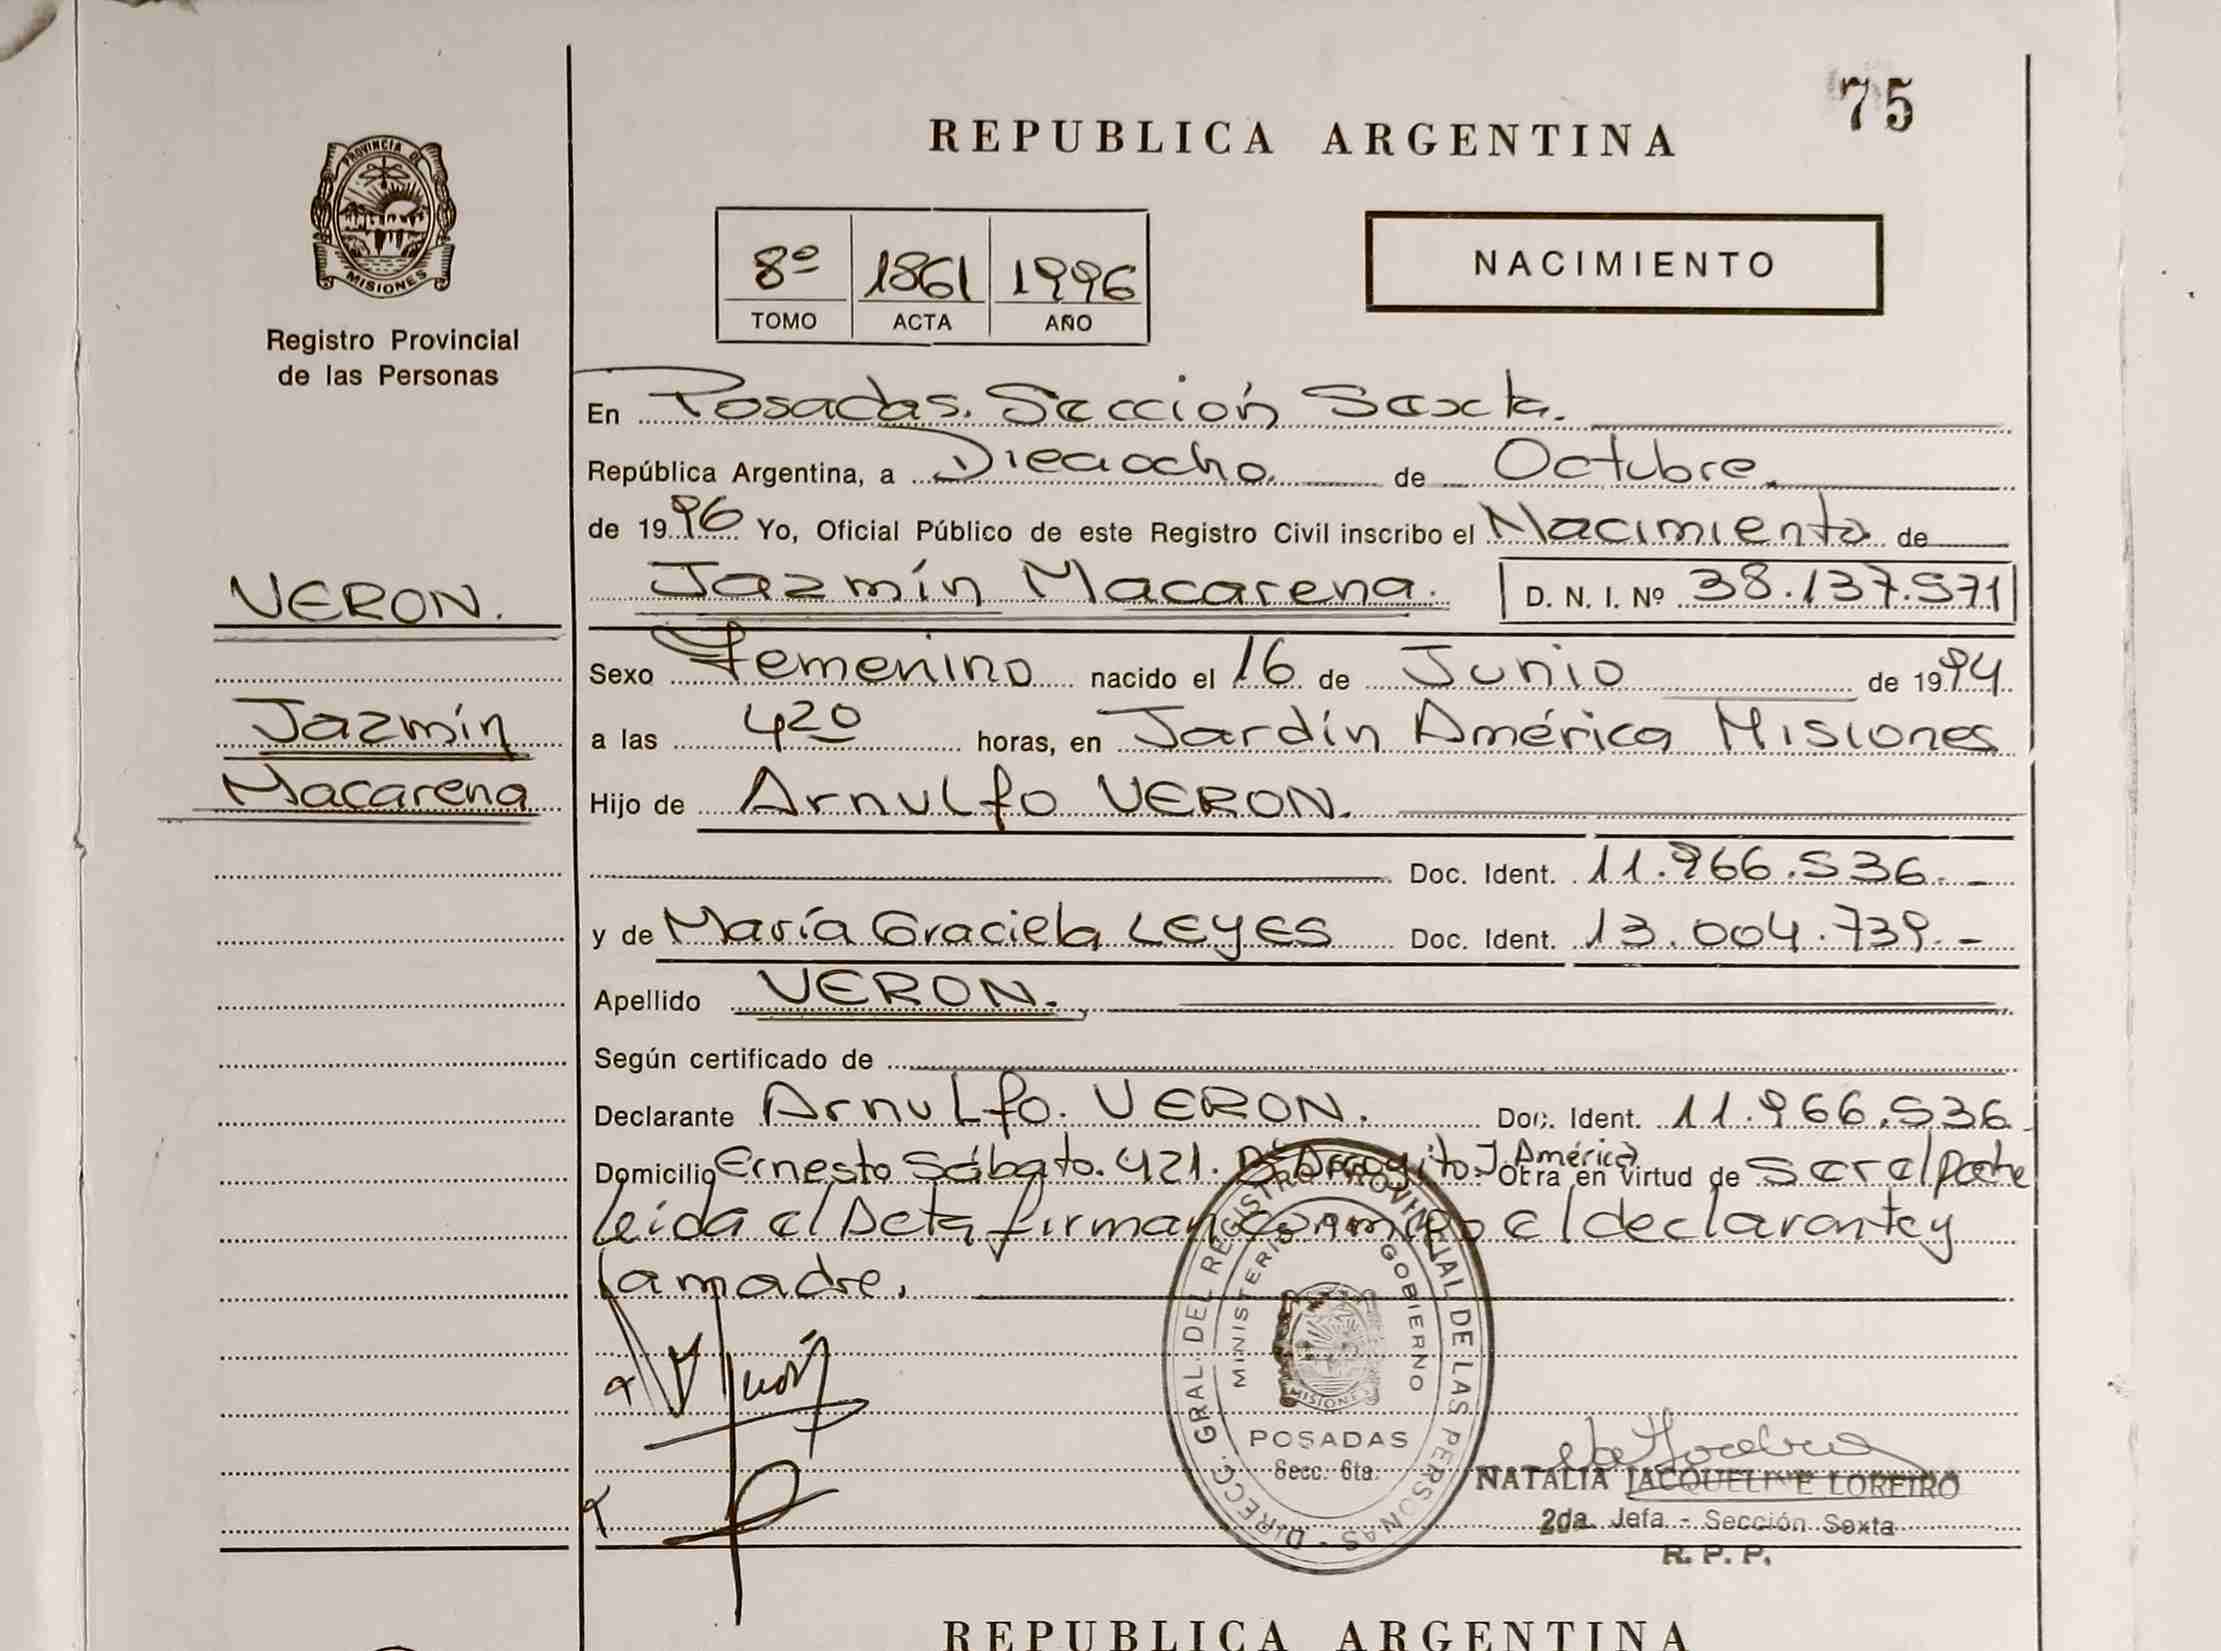 75
REPUBLICA ARGENTINA
PROVINCIA DE
MISIONES
Registro Provincial
de las Personas
8º 1861 1996
TOMO ACTA AÑO
NACIMIENTO
En Posadas. Sección Sexta.
República Argentina, a Dieciocho de Octubre
de 1996 Yo, Oficial Público de este Registro Civil inscribo el Nacimiento de
Jazmín Macarena. D. N. I. Nº 38.137.571
VERON.
Jazmín
Macarena
Sexo Femenino nacido el 16 de Junio de 1994
a las 4 20 horas, en Jardín América Misiones
Hijo de Arnulfo VERON.
Doc. Ident. 11.966.536.-
y de María Graciela LEYES Doc. Ident. 13.004.739.-
Apellido VERON.
Según certificado de
Declarante Arnulfo. VERON. Doc. Ident. 11.966.536
Domicilio Ernesto Sábato. 421. Bº Arroyito. J. América Otra en virtud de ser el padre
leida el Acta firman conmigo el declarante y
la madre.
DIRECC. GRAL. DEL REGISTRO PROVINCIAL DE LAS PERSONAS
MINISTERIO DE GOBIERNO
MISIONES
POSADAS
Secc. 6ta.
NATALIA JACQUELINE LOREIRO
2da. Jefa - Sección Sexta
R. P. P.
REPUBLICA ARGENTINA